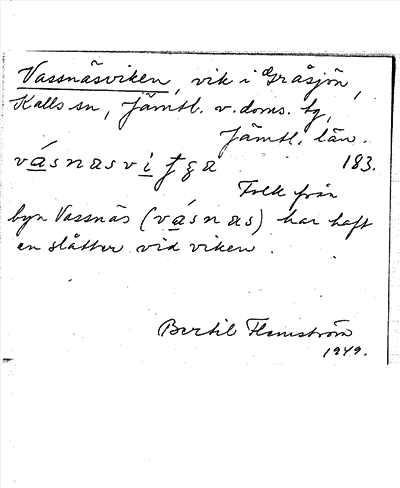 Vassnäsviken, vik i Gråsjön,
Kalls sn, Jämtl. v. doms. tg,
Jämtl. län.
vásnasviʈga 183.
Folk från
byn Vassnäs (vásnas) har haft
en slåtter vid viken.
Bertil Flemström
1949.